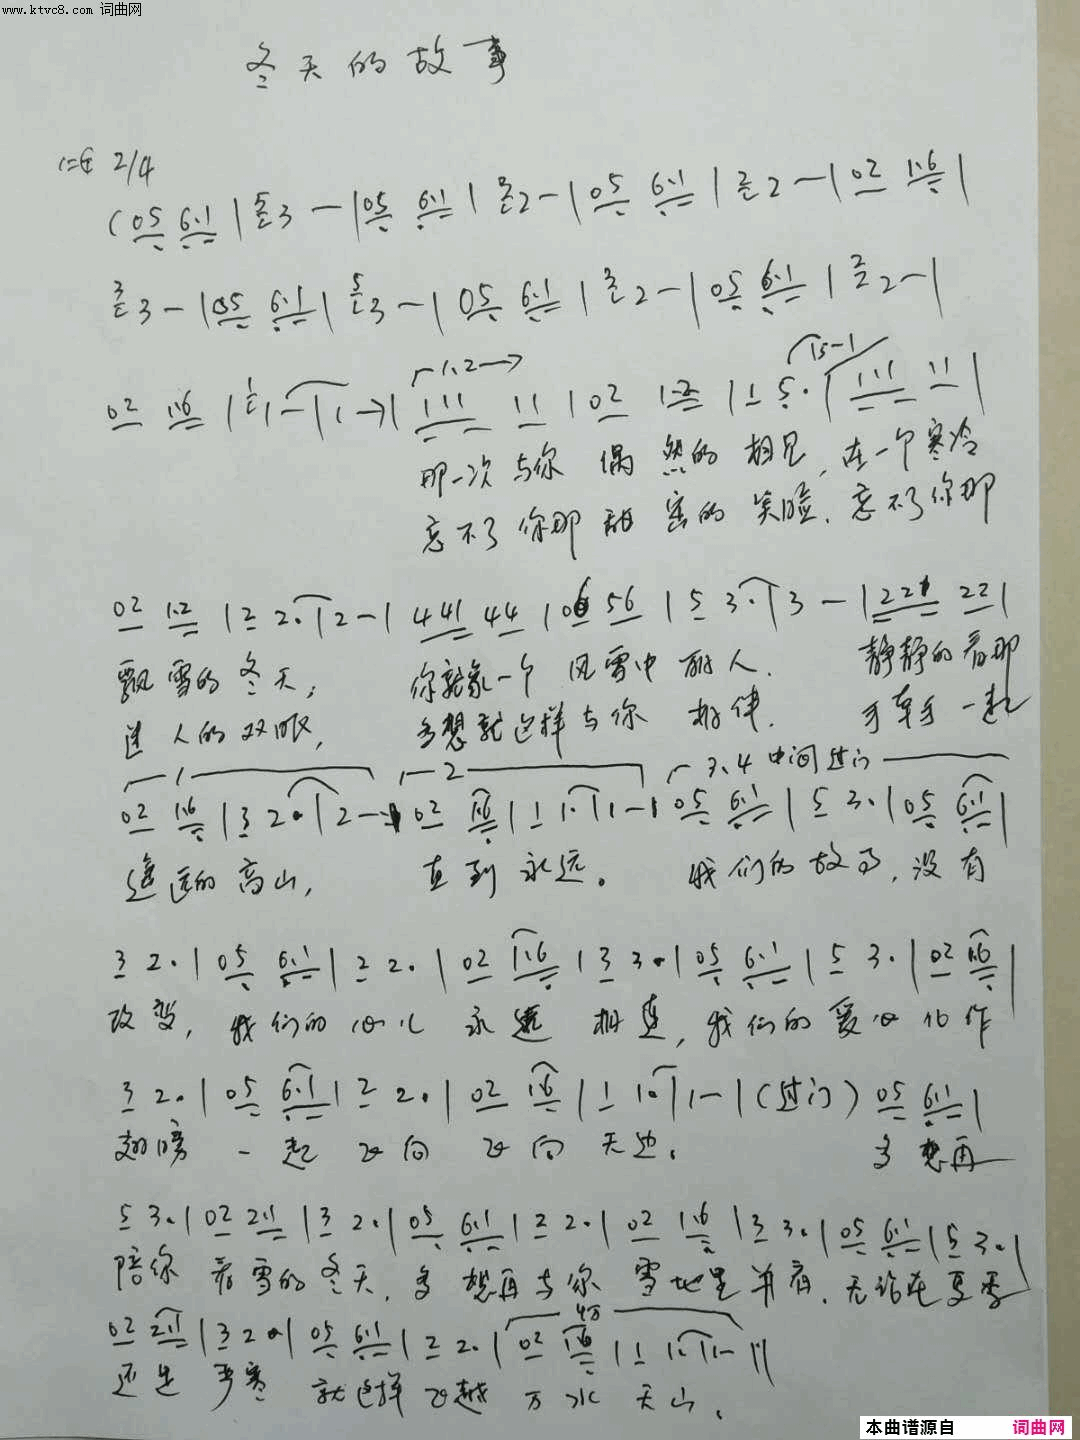 www.ktvc8.com 词曲网
冬天的故事
2/4
(05 6·1 | 3 - | 05 6·1 | 2 - | 05 6·1 | 2 - | 02 1·6 |
3 - | 05 6·1 | 3 - | 05 6·1 | 2 - | 05 6·1 | 2 - |
1.2
15-1
02 1·6 | 1 - | 1 -) | 111 11 | 02 1·2 | 1 5· | 111 11 |
那一次与你 偶然的相见,在一个寒冷
忘不了你那甜蜜的笑脸,忘不了你那
02 1·2 | 2 2· | 2 - | 441 44 | 06 56 | 5 3· | 3 - | 221 22 |
飘雪的冬天; 你就象一个风雪中丽人, 静静的看那
迷人的双眼, 多想就这样与你相伴, 手牵手一起
1 2 3、4中间过门
02 1·6 | 3 2· | 2 - 02 1·6 | 1 1· | 1 - | 05 6·1 | 5 3· | 05 6·1 |
遥远的高山, 直到永远。 我们的故事,没有
3 2· | 05 6·1 | 2 2· | 02 1·6 | 3 3· | 05 6·1 | 5 3· | 02 1·6 |
改变,我们的心儿永远相连,我们的爱心化作
3 2· | 05 6·1 | 2 2· | 02 1·6 | 1 1· | 1 - | (过门) 05 6·1 |
翅膀一起飞向飞向天边。 多想再
5 3· | 02 2·1 | 3 2· | 05 6·1 | 2 2· | 02 1·6 | 3 3· | 05 6·1 | 5 3· |
陪你看雪的冬天,多想再与你雪地里并肩,无论在夏季
02 2·1 | 3 2· | 05 6·1 | 2 2· | 02 1·6 | 1 1· | 1 - ||
还是严寒就这样飞越万水千山。
本曲谱源自 词曲网